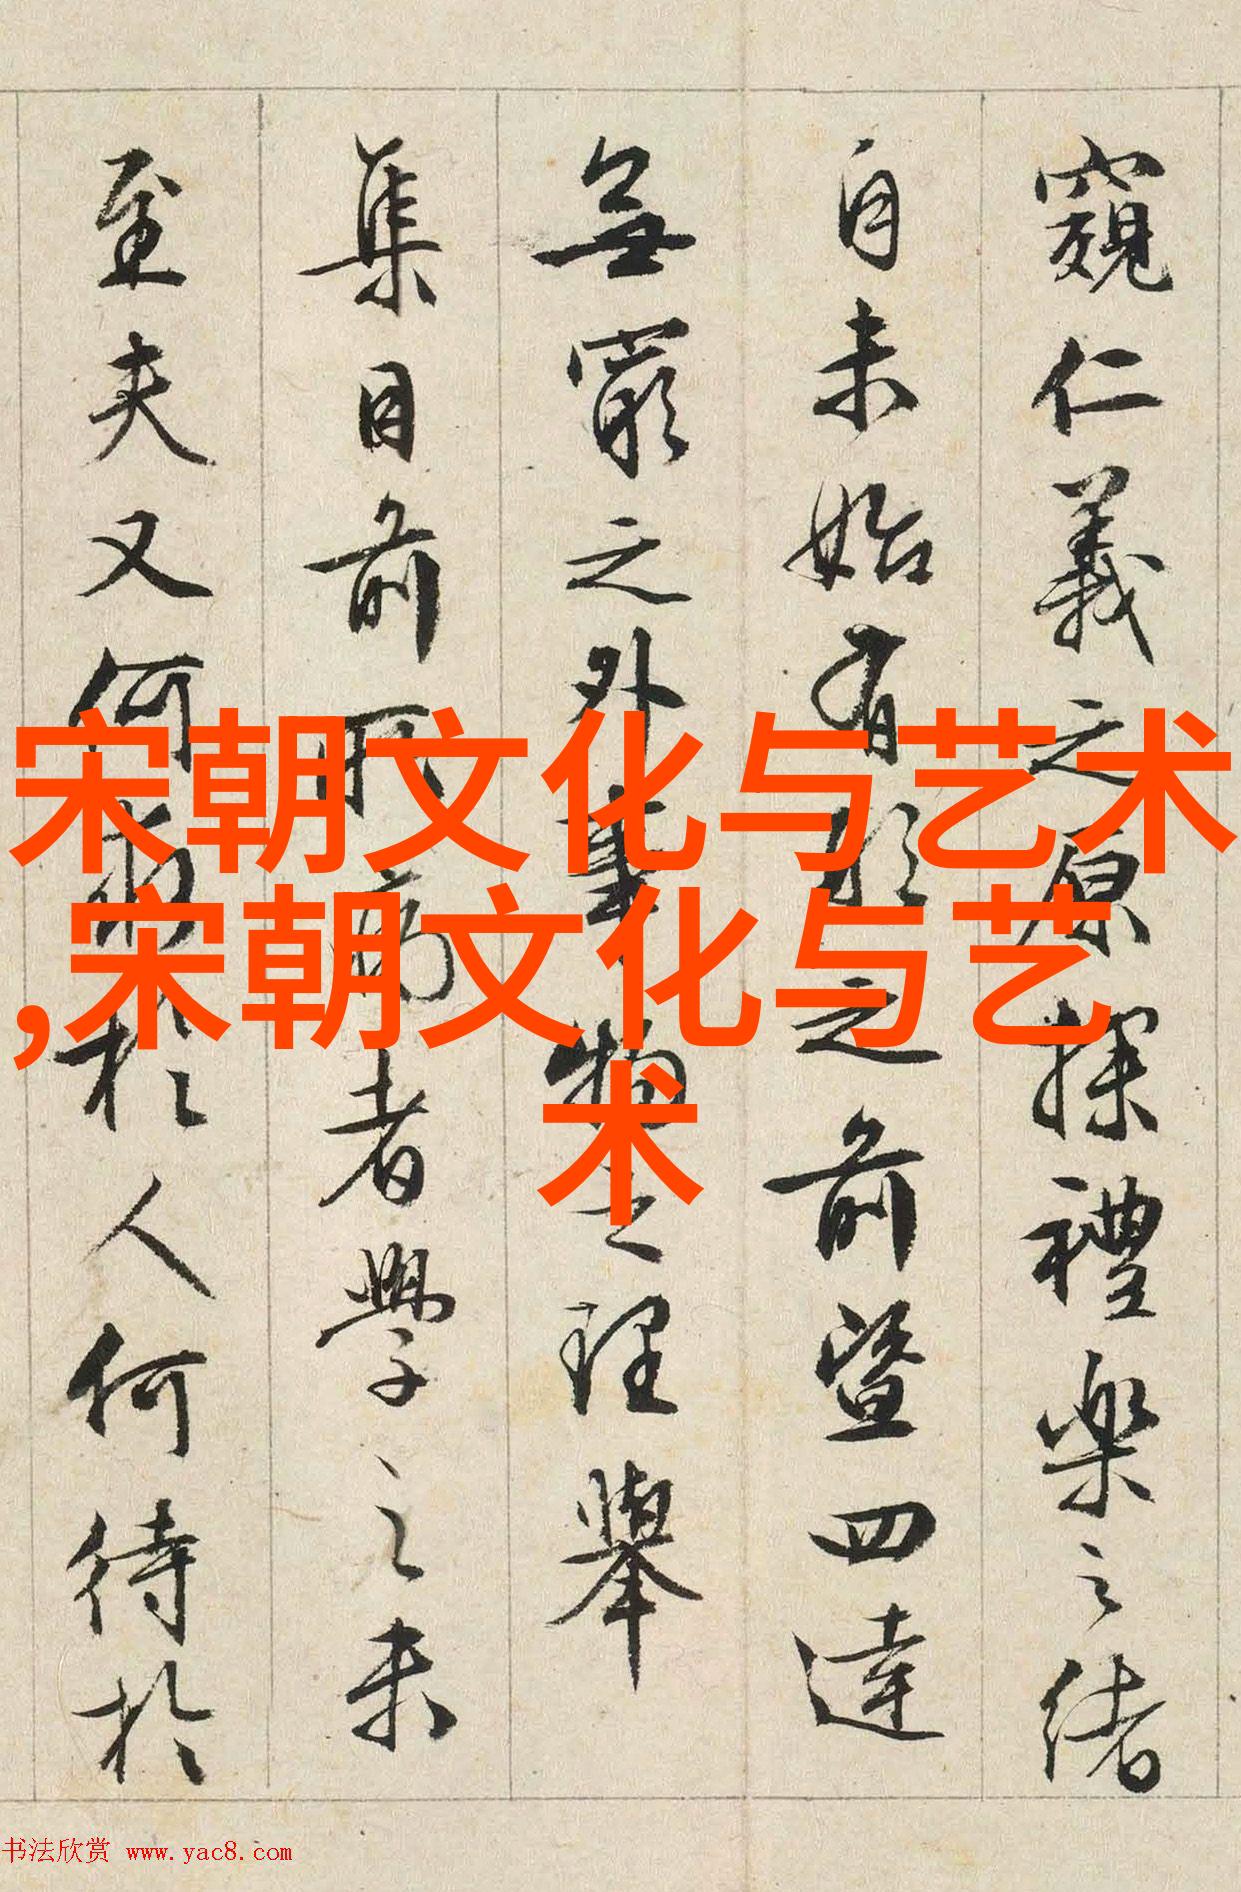 窺仁義之原探禮樂之緒
自未始有形之前暨四達
無窮之外事物之理舉
集目前所病者學之未
至夫又何求於人何待於
宋朝文化与艺术
,宋朝文化与艺
术
书法欣赏 www.yac8.com